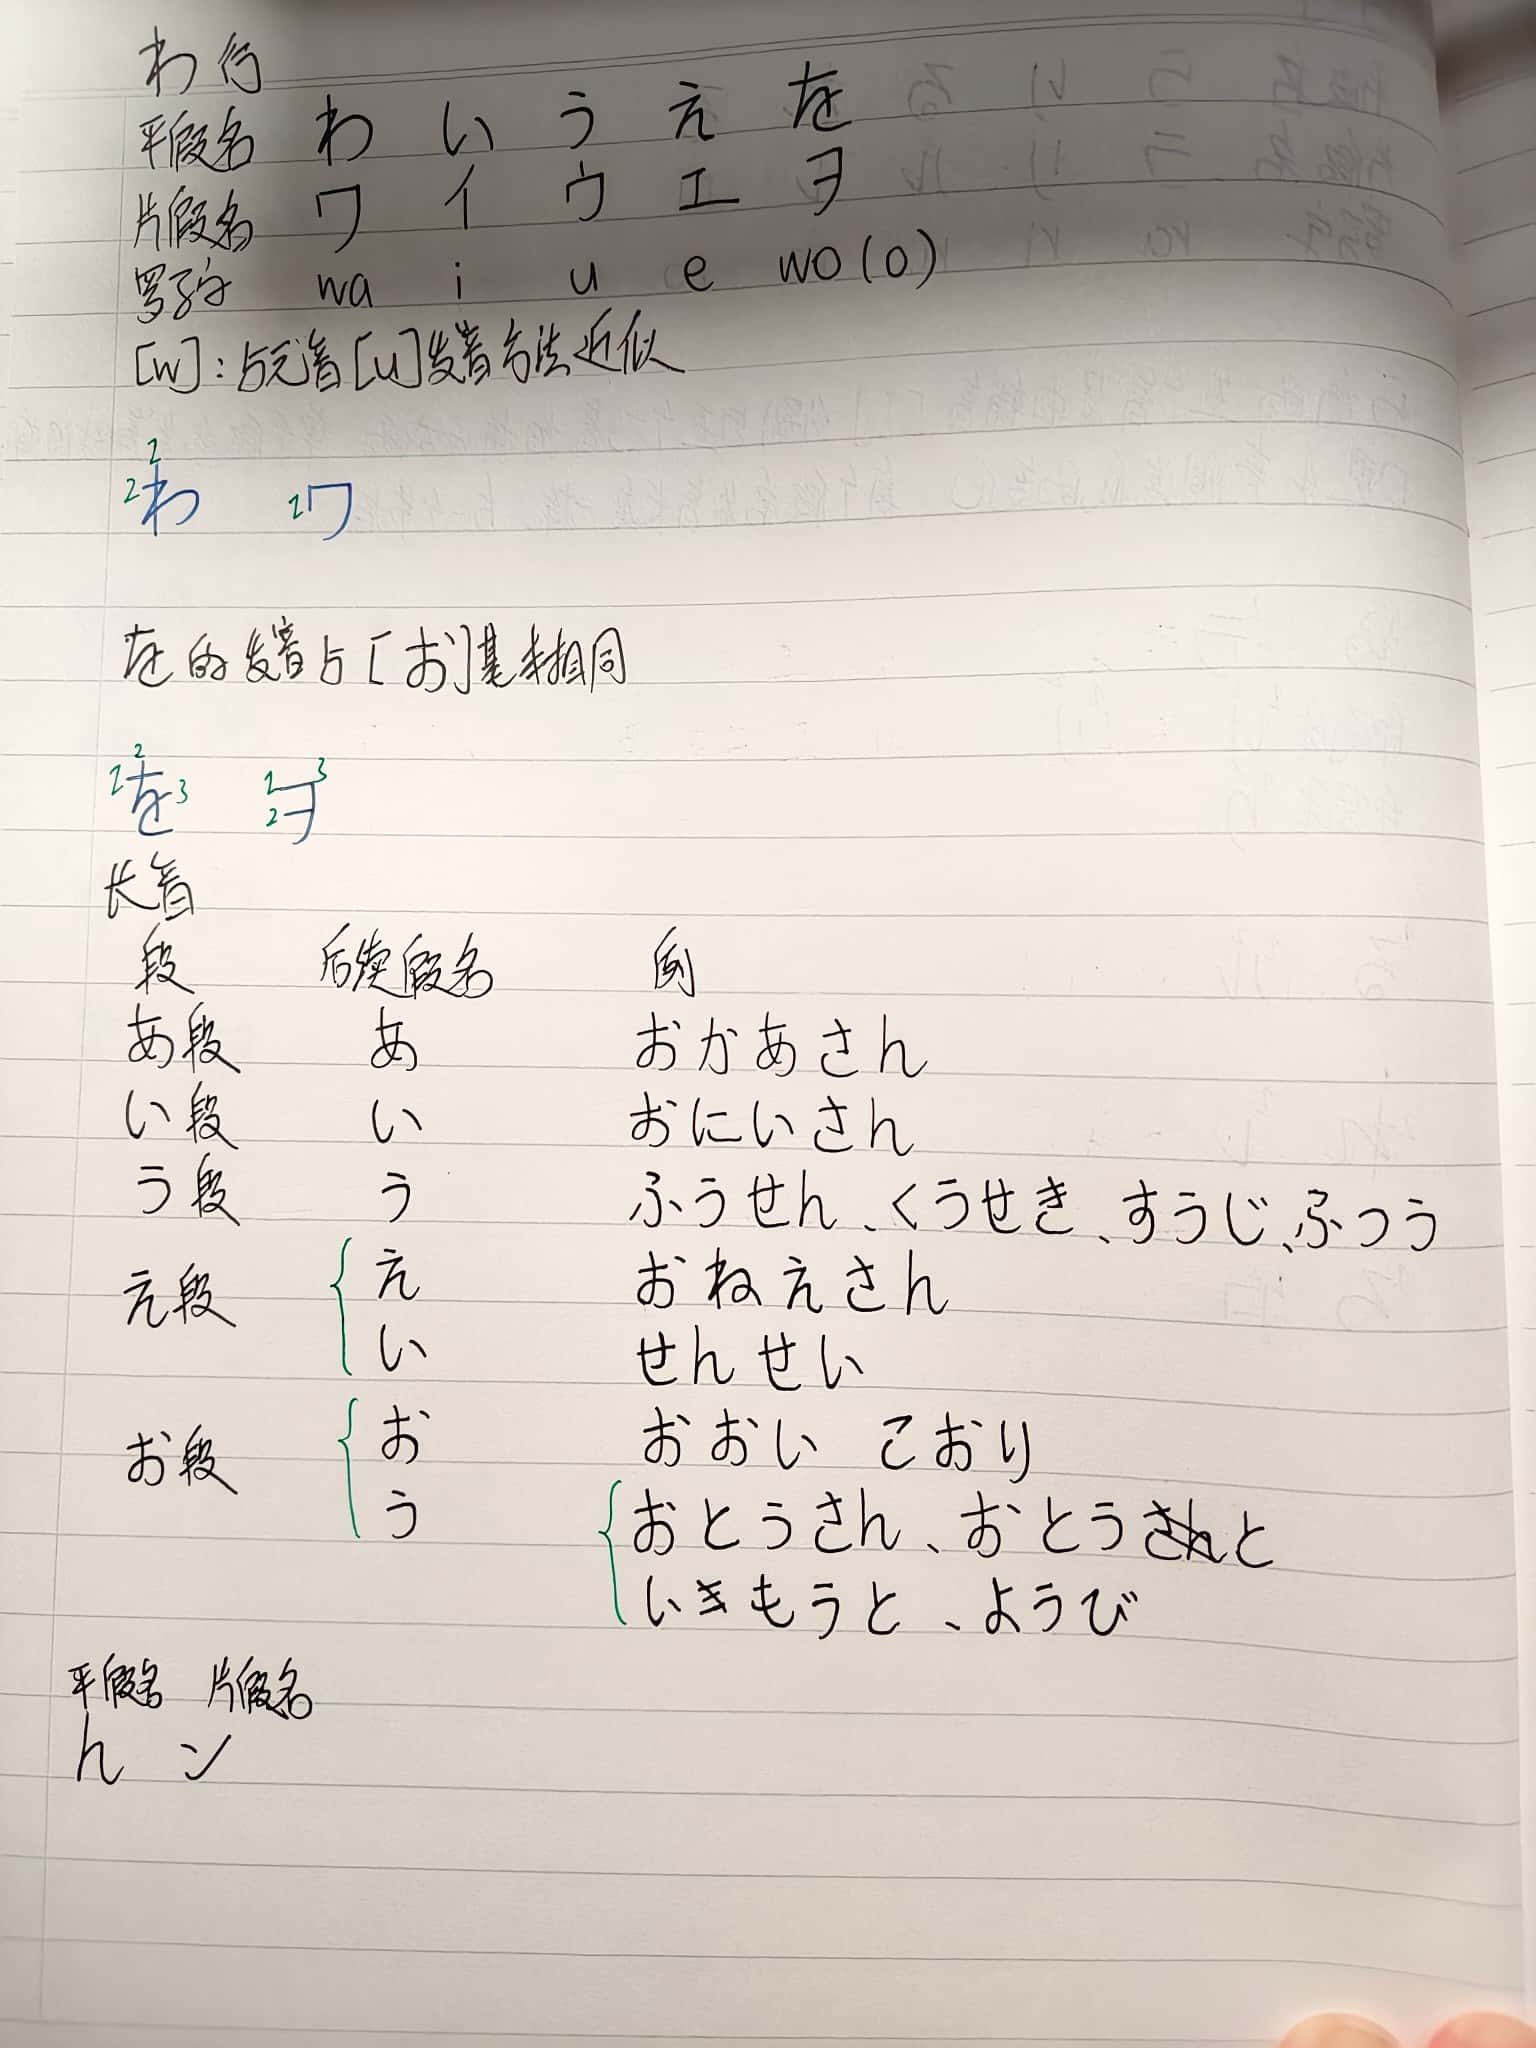 わ行
平假名 わ い う え を
片假名 ワ イ ウ エ ヲ
罗字 wa i u e wo(o)
[w]:与元音[u]发音方法近似
1 2 わ 1 ワ
を的发音与[お]基本相同
1 2 を 3 1 2 ヲ 3
长音
段 后续假名 例
あ段 あ おかあさん
い段 い おにいさん
う段 う ふうせん、くうせき、すうじ、ふつう
え段 え おねえさん
い せんせい
お段 お おおい こおり
う おとうさん、おとうと
いきもうと、ようび
平假名 片假名
ん ン